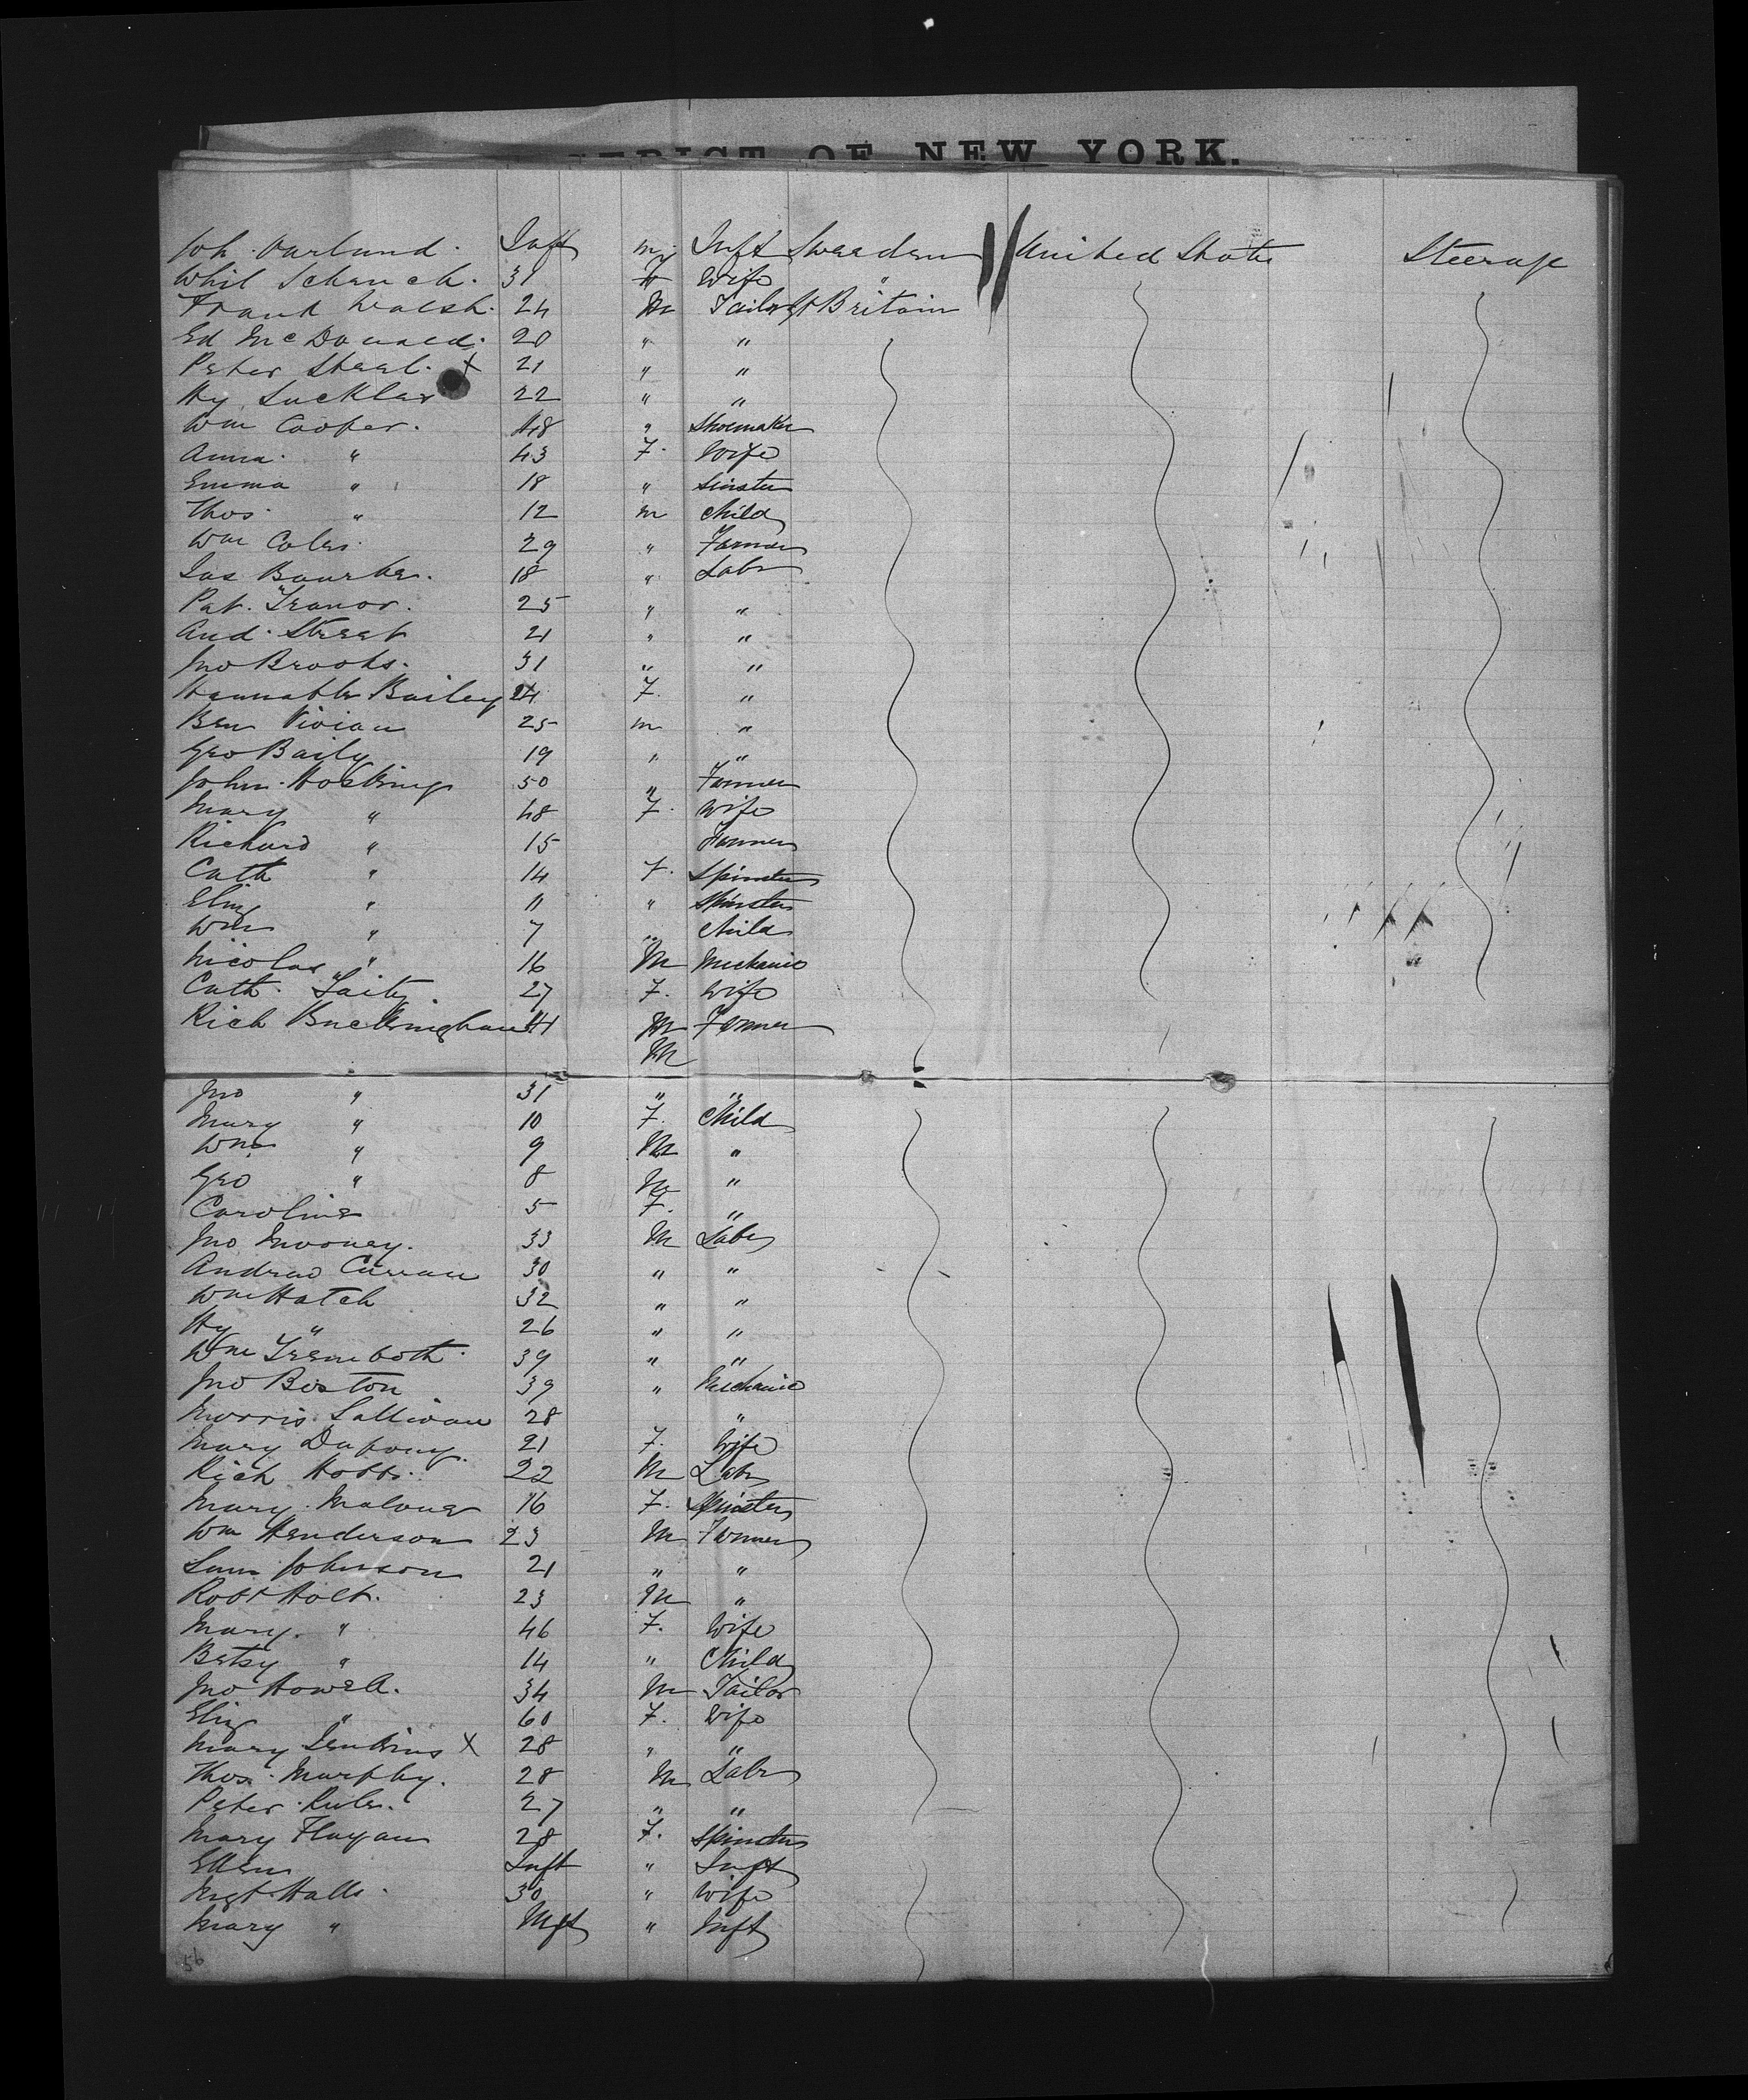 DISTRICT OF NEW YORK.
Joh. Varlund. Inft m Inft Sweeden United State Steerage
Whil Schench. 31 F Wife "
Frank Walsh. 24 M Tailor Gt Britain
Ed McDonald. 20 " "
Peter Steel. X 21 " "
Hy Sucklar 22 " "
Wm Cooper. 48 " Shoemaker
Anna. " 43 F. Wife
Emma " 18 " Sinster
Thos. " 12 m Child
Wm Coles. 29 " Farmer
Jas Bourke. 18 " Labr
Pat. Treanor. 25 " "
And. Street 21 " "
Jno Brooks. 31 " "
Hannahh Bailey 24 F. "
Ben Vivian 25 m "
Geo Baily 19 " "
John. Hosking 50 " Farmer
Mary " 48 F. Wife
Richard " 15 Farmer
Cath " 14 F. Spinster
Eliz " 11 " Spinster
Wm " 7 " Child
Nicolas " 16 M Mechanic
Cath. Laity. 27 F. Wife
Rich Buckingham 41 M Farmer
M
Jno " 31 " "
Mary " 10 F. Child
Wm " 9 M "
Geo " 8 M "
Caroline 5 F. "
Jno Mooney. 33 M Labr
Andrew Curran 30 " "
Wm Hatch 32 " "
Hy " 26 " "
Wm Tremboth. 39 " "
Jno Boston 39 " Mechanic
Morris Sullivan 28 "
Mary Dapony. 21 F. Wife
Rich Hobbs. 22 M Labr
Mary. Malone 16 F. Spinster
Wm Henderson 23 M Farmer
Sam Johnson 21 " "
Robt Holt. 23 M "
Mary. " 46 F. Wife
Betsy " 14 " Child
Jno Howell. 34 M Tailor
Eliz " 60 F. Wife
Mary Jenkins X 28 " "
Thos. Murphy. 28 M Labr
Peter Rule. 27 " "
Mary Flagan 28 F. Spinster
Ellen Inft " Inft
Mgt Halls. 30 " Wife
Mary " Inft " Inft
56